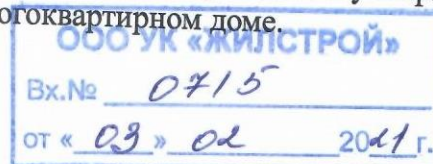 огоквартирном доме.
ООО УК «ЖИЛСТРОЙ»
Вх.№ 0715
от « 03 » 02 2021 г.